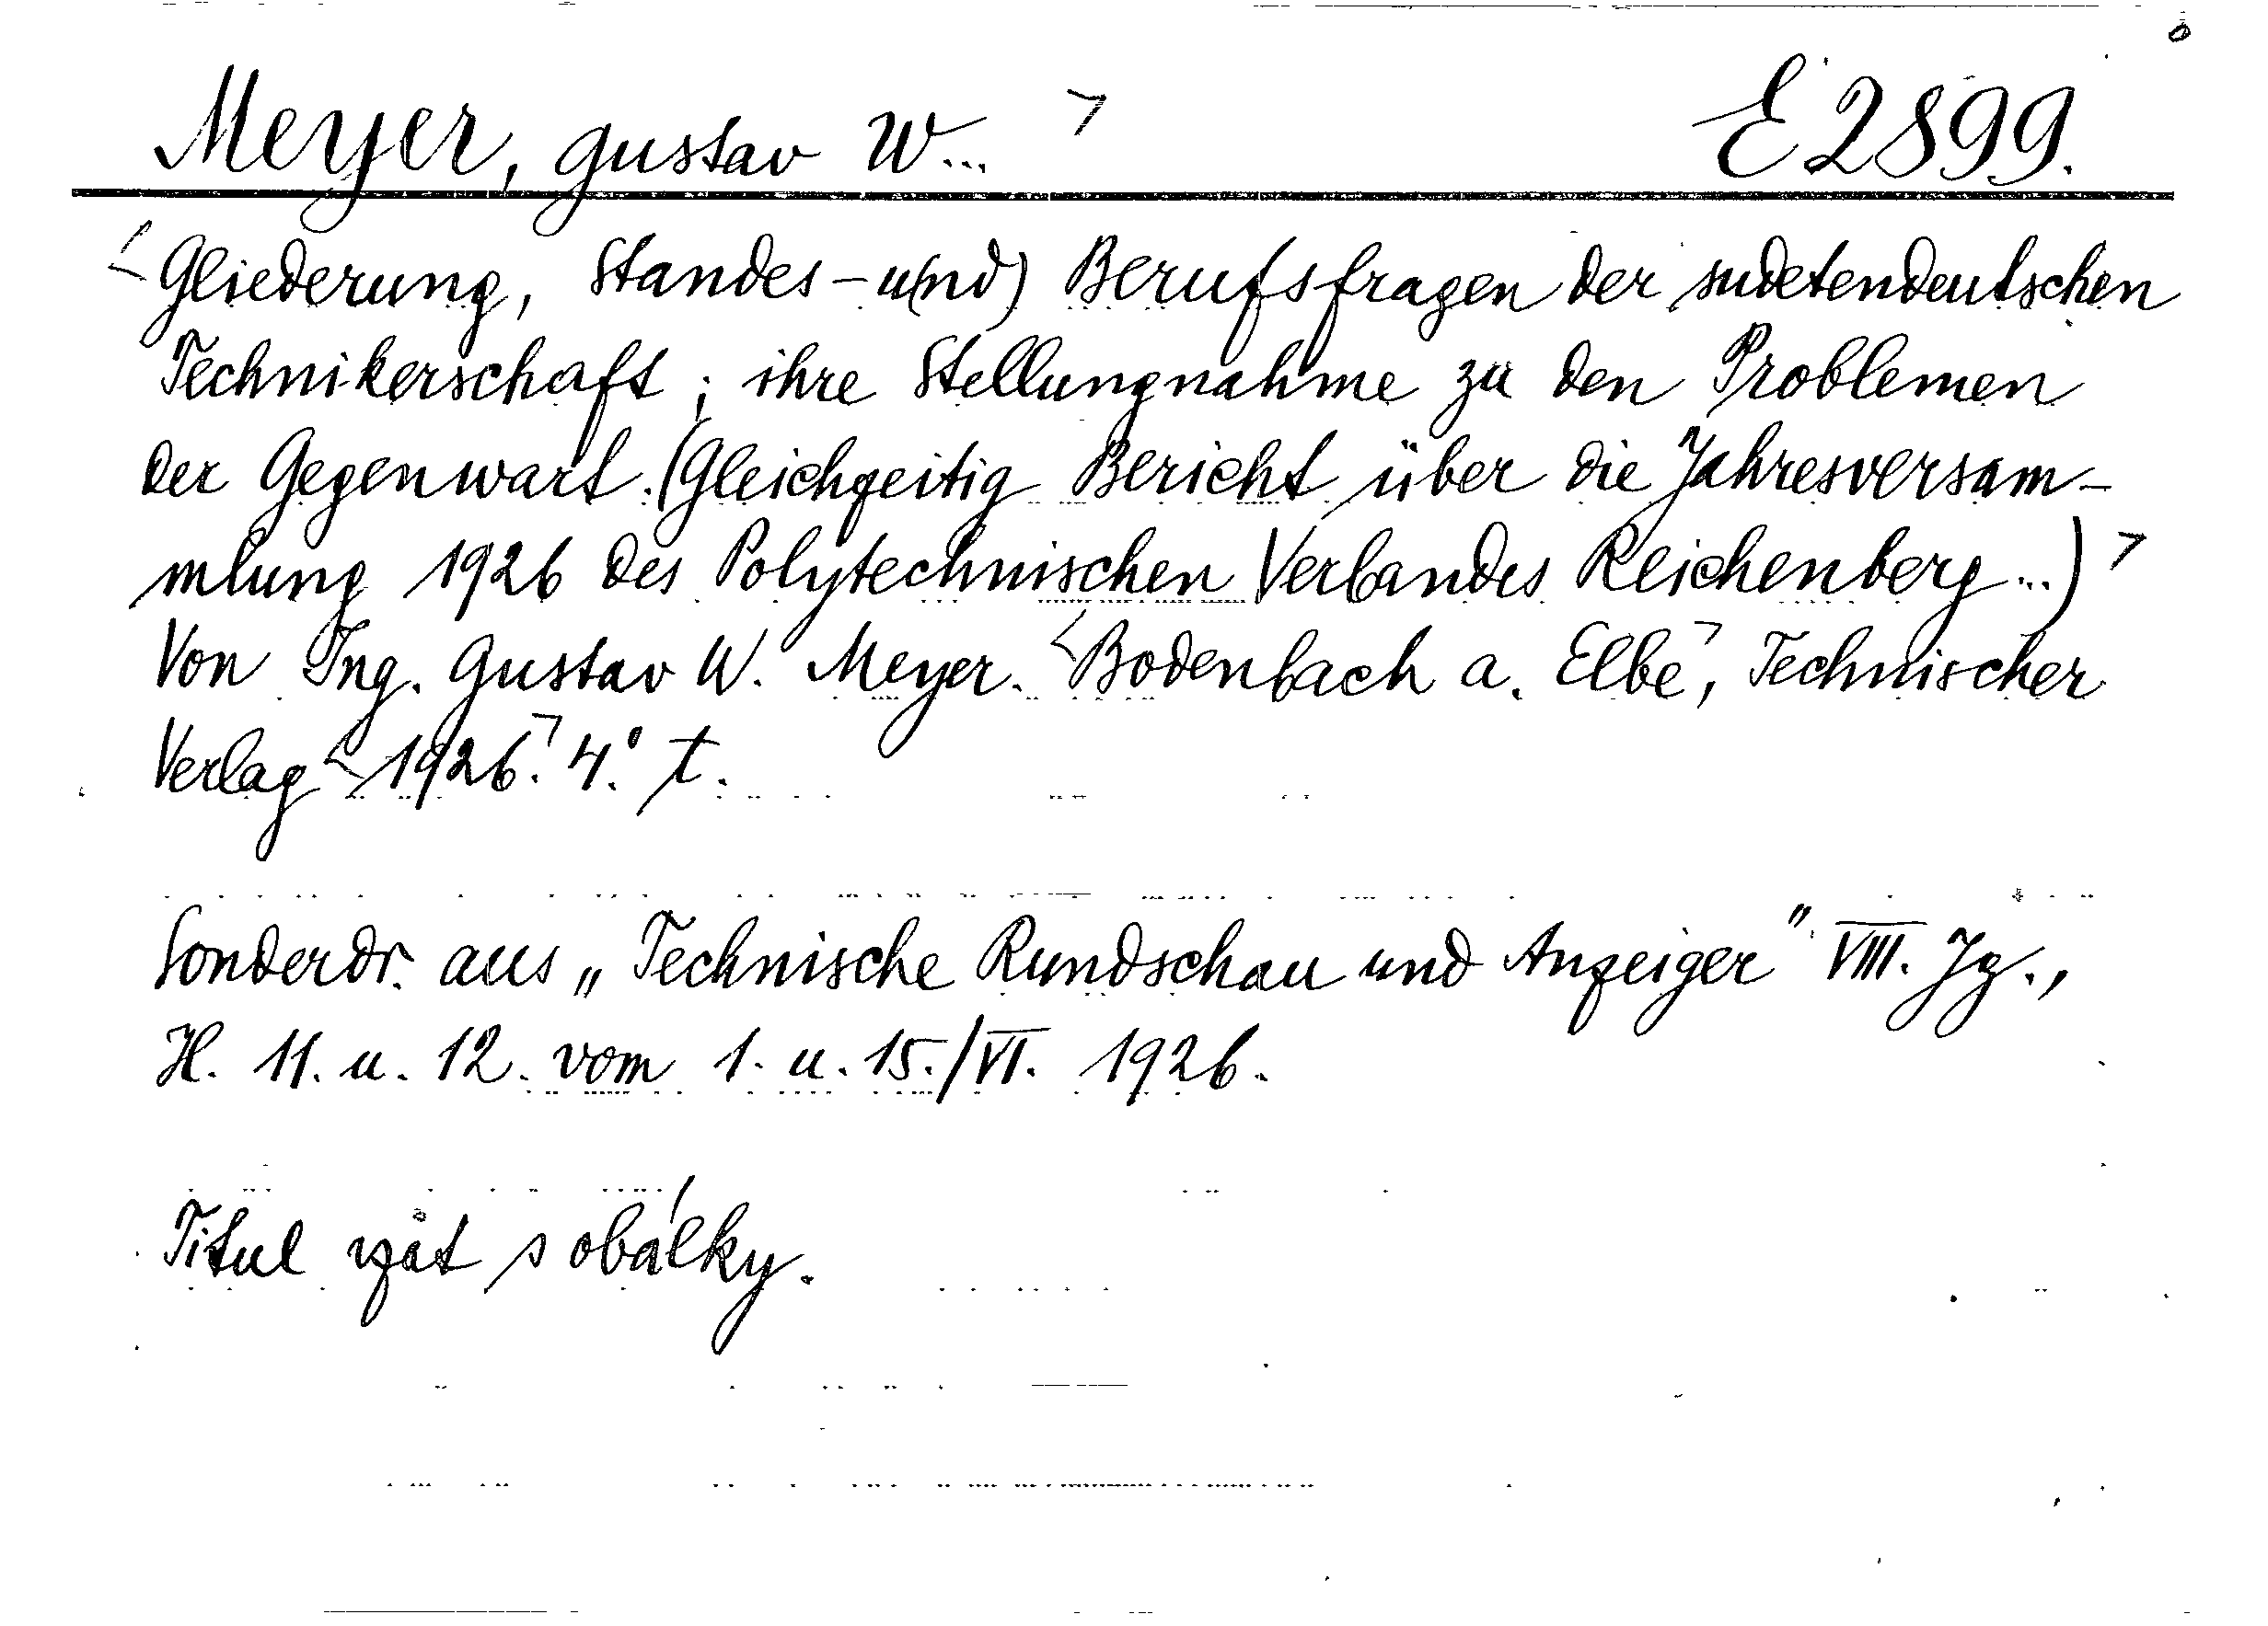 Meyer, Gustav W... > E 2899.
<Gliederung, Standes-u(nd) Berufsfragen der sudetendeutschen
Technikerschaft; ihre Stellungnahme zu den Problemen
der Gegenwart. (Gleichzeitig Bericht über die Jahresversam-
mlung 1926 des Polytechnischen Verbandes Reichenberg...) >
Von Ing. Gustav W. Meyer. <Bodenbach a. Elbe>, Technischer
Verlag <1926.> 4.° t.
Sonderdr. aus „Technische Rundschau und Anzeiger" VIII. Jg.,
H. 11. u. 12. vom 1. u. 15./VI. 1926.
Titul vzat s obálky.